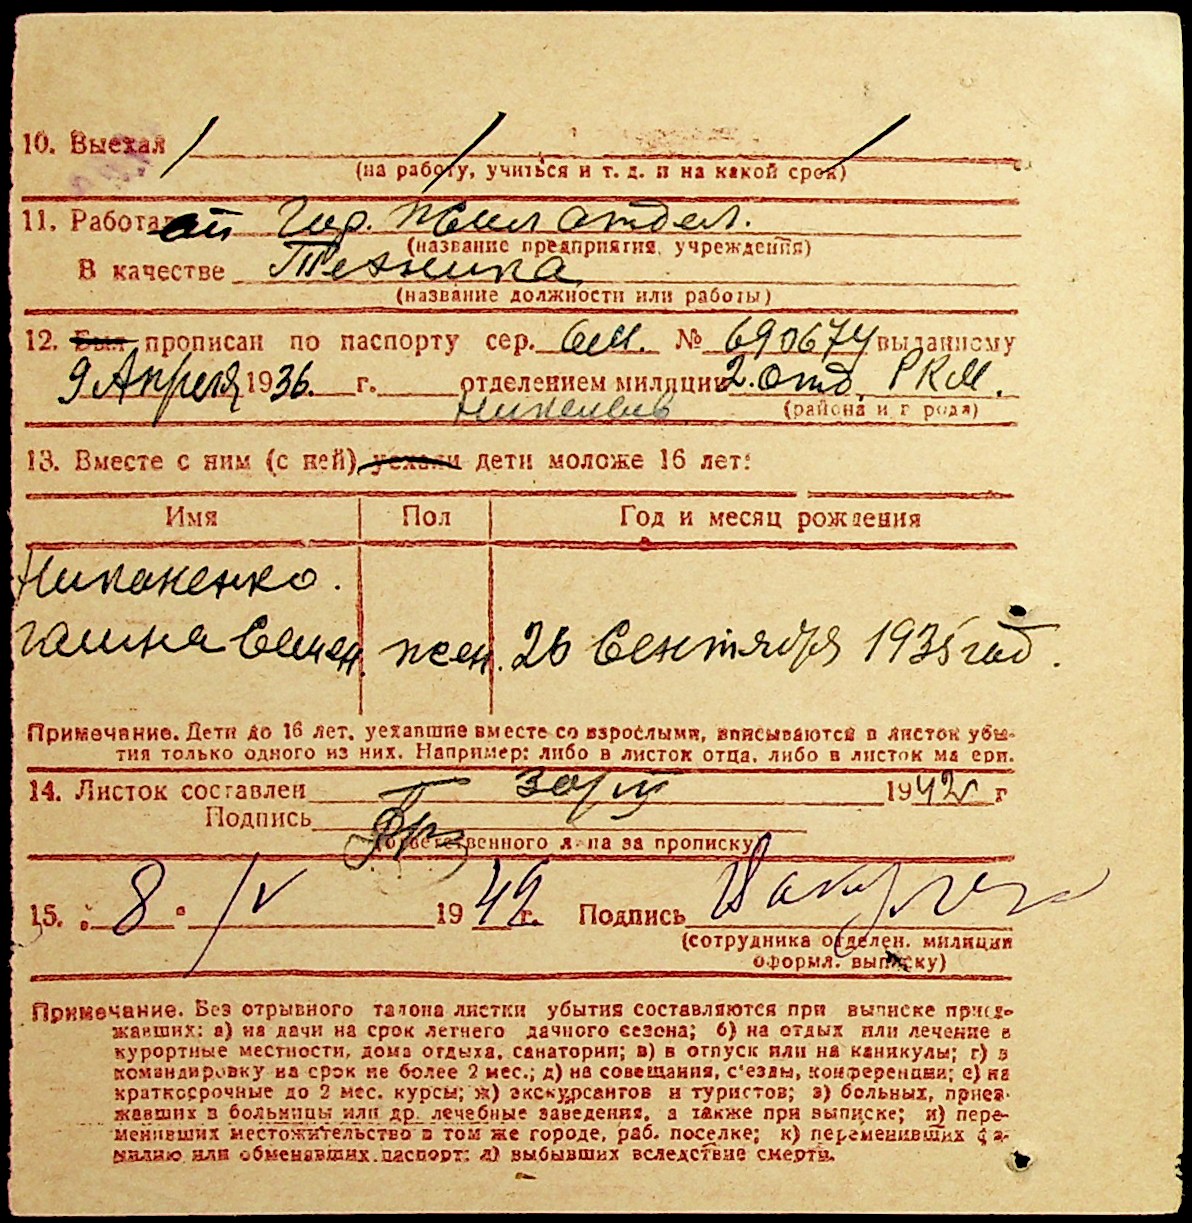 10. Выехал
(на работу, учиться и т. д. и на какой срок)
11. Работает Гор. Жил отдел.
(название предприятия, учреждения)
В качестве Техника
(название должности или работы)
12. Был прописан по паспорту сер. № 690674 выданному
9 Апреля 1936. г. отделением милиции 2. отд. РКМ.
(района и города)
13. Вместе с ним (с ней) уехали дети моложе 16 лет:
Имя Пол Год и месяц рождения
Галина Семен. жен. 26 Сентября 1935 год.
Примечание. Дети до 16 лет, уехавшие вместе со взрослыми, вписываются в листок убы-
тия только одного из них. Например: либо в листок отца, либо в листок матери.
14. Листок составлен 1942 г
Подпись
(ответственного лица за прописку)
15. „ 8 " IV 1942 г. Подпись
(сотрудника отделен. милиции
оформл. выписку)
Примечание. Без отрывного талона листки убытия составляются при выписке приез-
жавших: а) на дачи на срок летнего дачного сезона; б) на отдых или лечение в
курортные местности, дома отдыха, санатории; в) в отпуск или на каникулы; г) в
командировку на срок не более 2 мес.; д) на совещания, с'езды, конференции; е) на
краткосрочные до 2 мес. курсы; ж) экскурсантов и туристов; з) больных, приез-
жавших в больницы или др. лечебные заведения, а также при выписке; и) пере-
менивших местожительство в том же городе, раб. поселке; к) переменивших фа-
милию или обменавших паспорт; л) выбывших вследствие смерти.